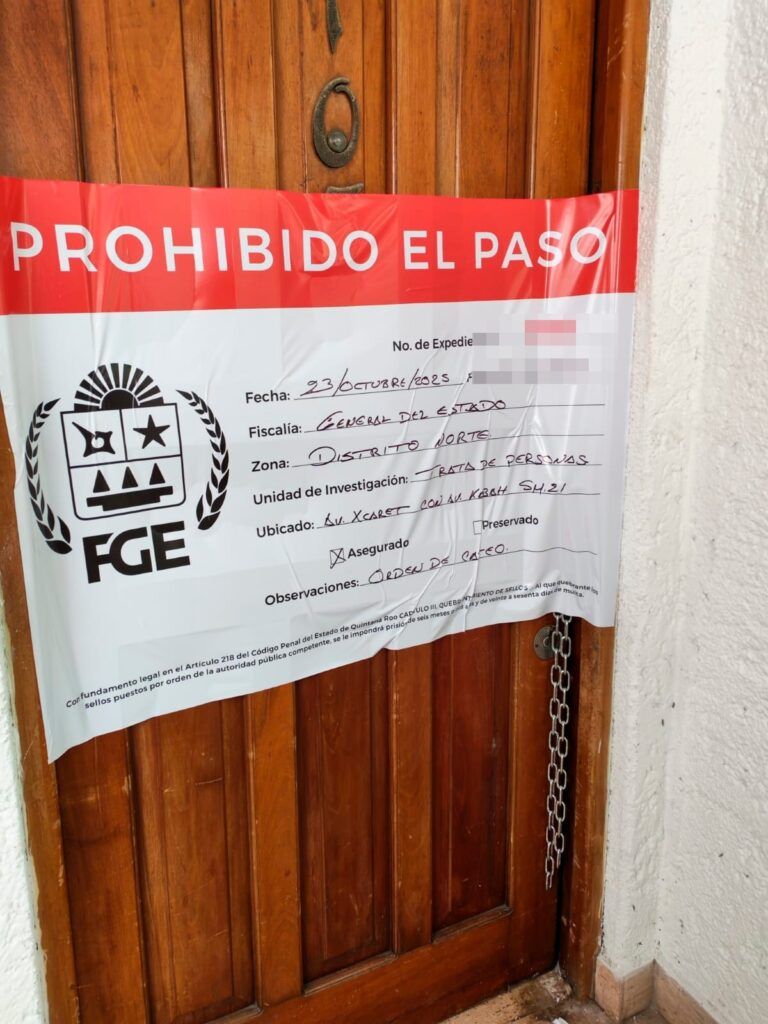 PROHIBIDO EL PASO
No. de Expedie
Fecha: 23/OCTUBRE/2025
Fiscalía: GENERAL DEL ESTADO
Zona: DISTRITO NORTE.
Unidad de Investigación: TRATA DE PERSONAS
Ubicado: AV. XCARET CON AV KABAH SM.21
☒ Asegurado ☐ Preservado
Observaciones: ORDEN DE CATEO.
FGE
Con fundamento legal en el Artículo 218 del Código Penal del Estado de Quintana Roo CAPÍTULO III, QUEBRANTAMIENTO DE SELLOS. Al que quebrante los
sellos puestos por orden de la autoridad pública competente, se le impondrá prisión de seis meses y de veinte a sesenta días de multa.